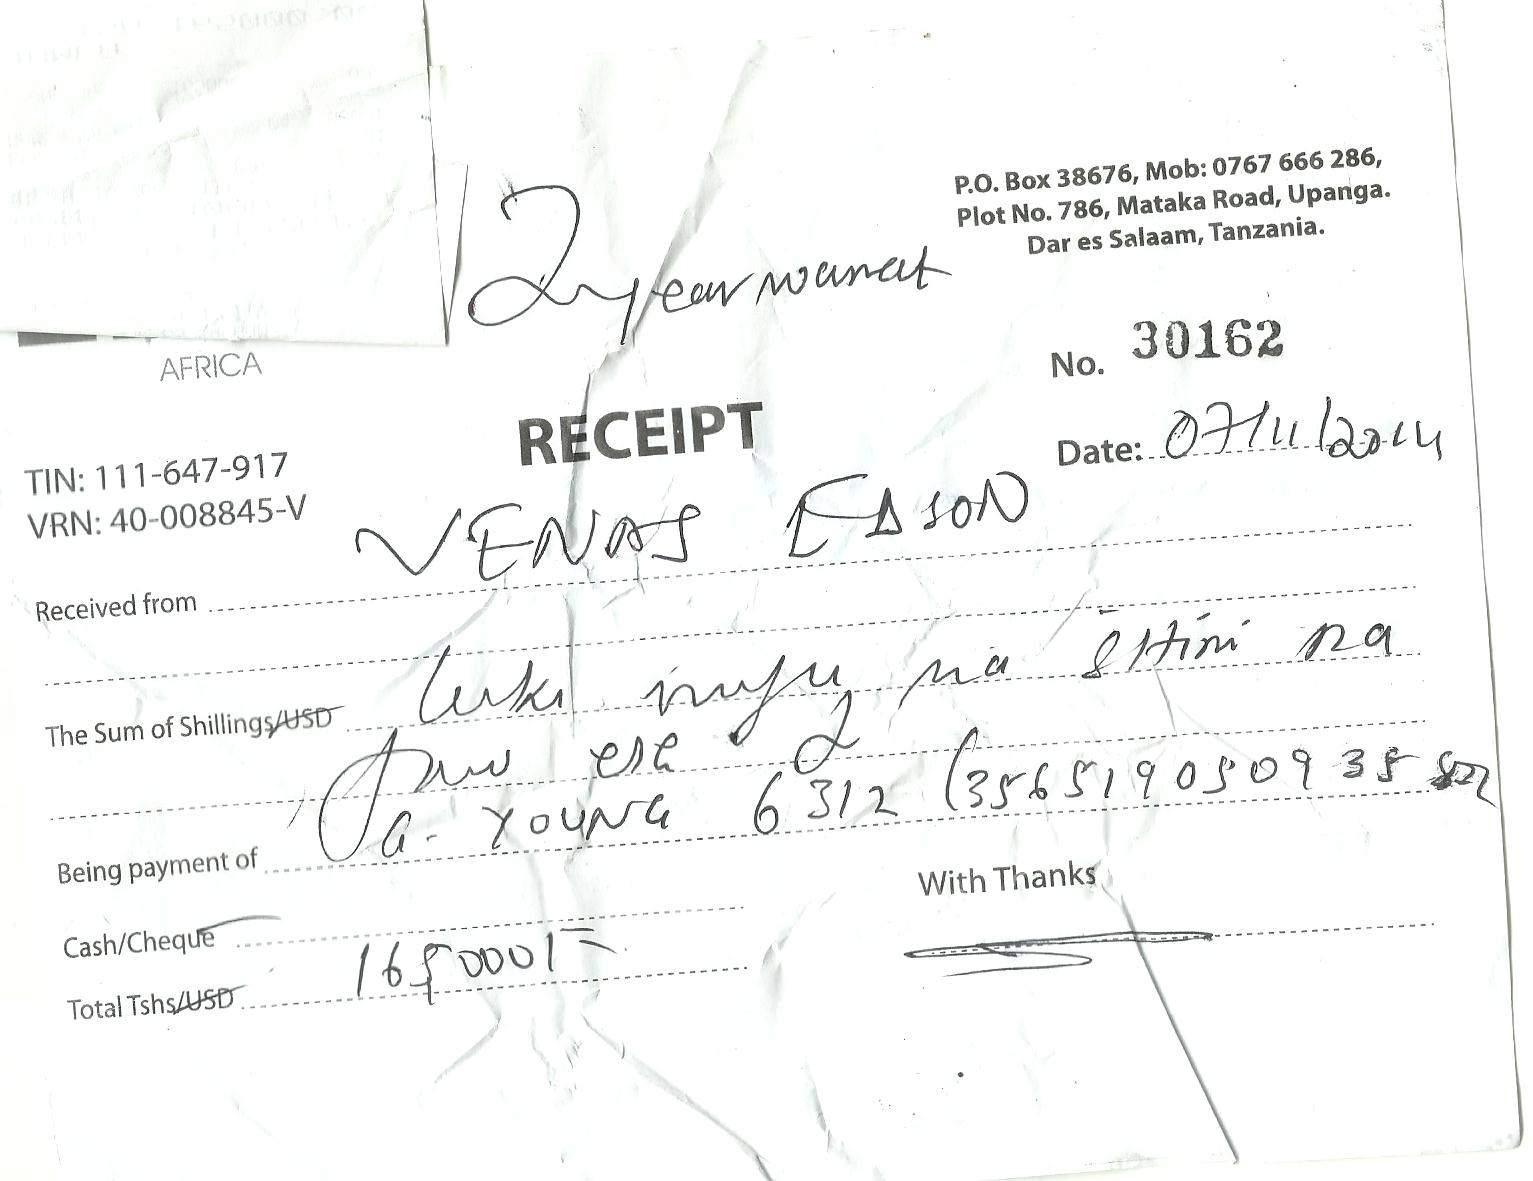 P.O. Box 38676, Mob: 0767 666 286,
Plot No. 786, Mataka Road, Upanga.
Dar es Salaam, Tanzania.
2 year waraet
AFRICA
No. 30162
RECEIPT
Date: 07/11/2014
TIN: 111-647-917
VRN: 40-008845-V
Received from VENAS EDSON
The Sum of Shillings/USD laki moja na sitini na
tano elf
Being payment of G. YOUNG 6312 (356519050935
With Thanks
Cash/Cheque
Total Tshs/USD 165000/=